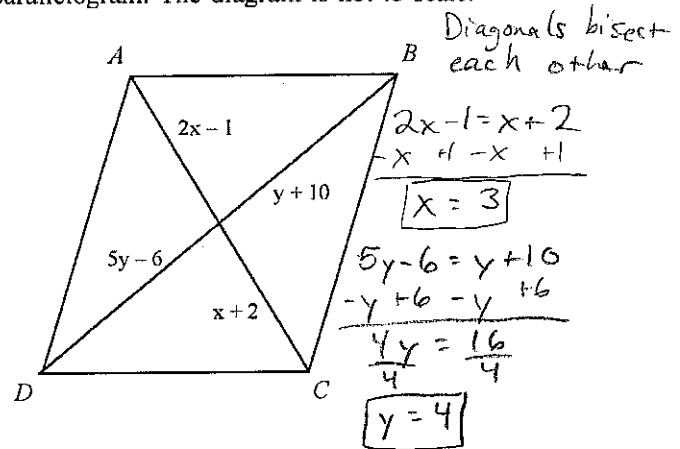 parallelogram. The diagram is not to scale.
Diagonals bisect
each other
A
B
2x – 1
y + 10
5y – 6
x + 2
D
C
2x-1=x+2
-x +1 -x +1
x = 3
5y-6= y+10
-y +6 -y +6
4y = 16
4 4
y = 4